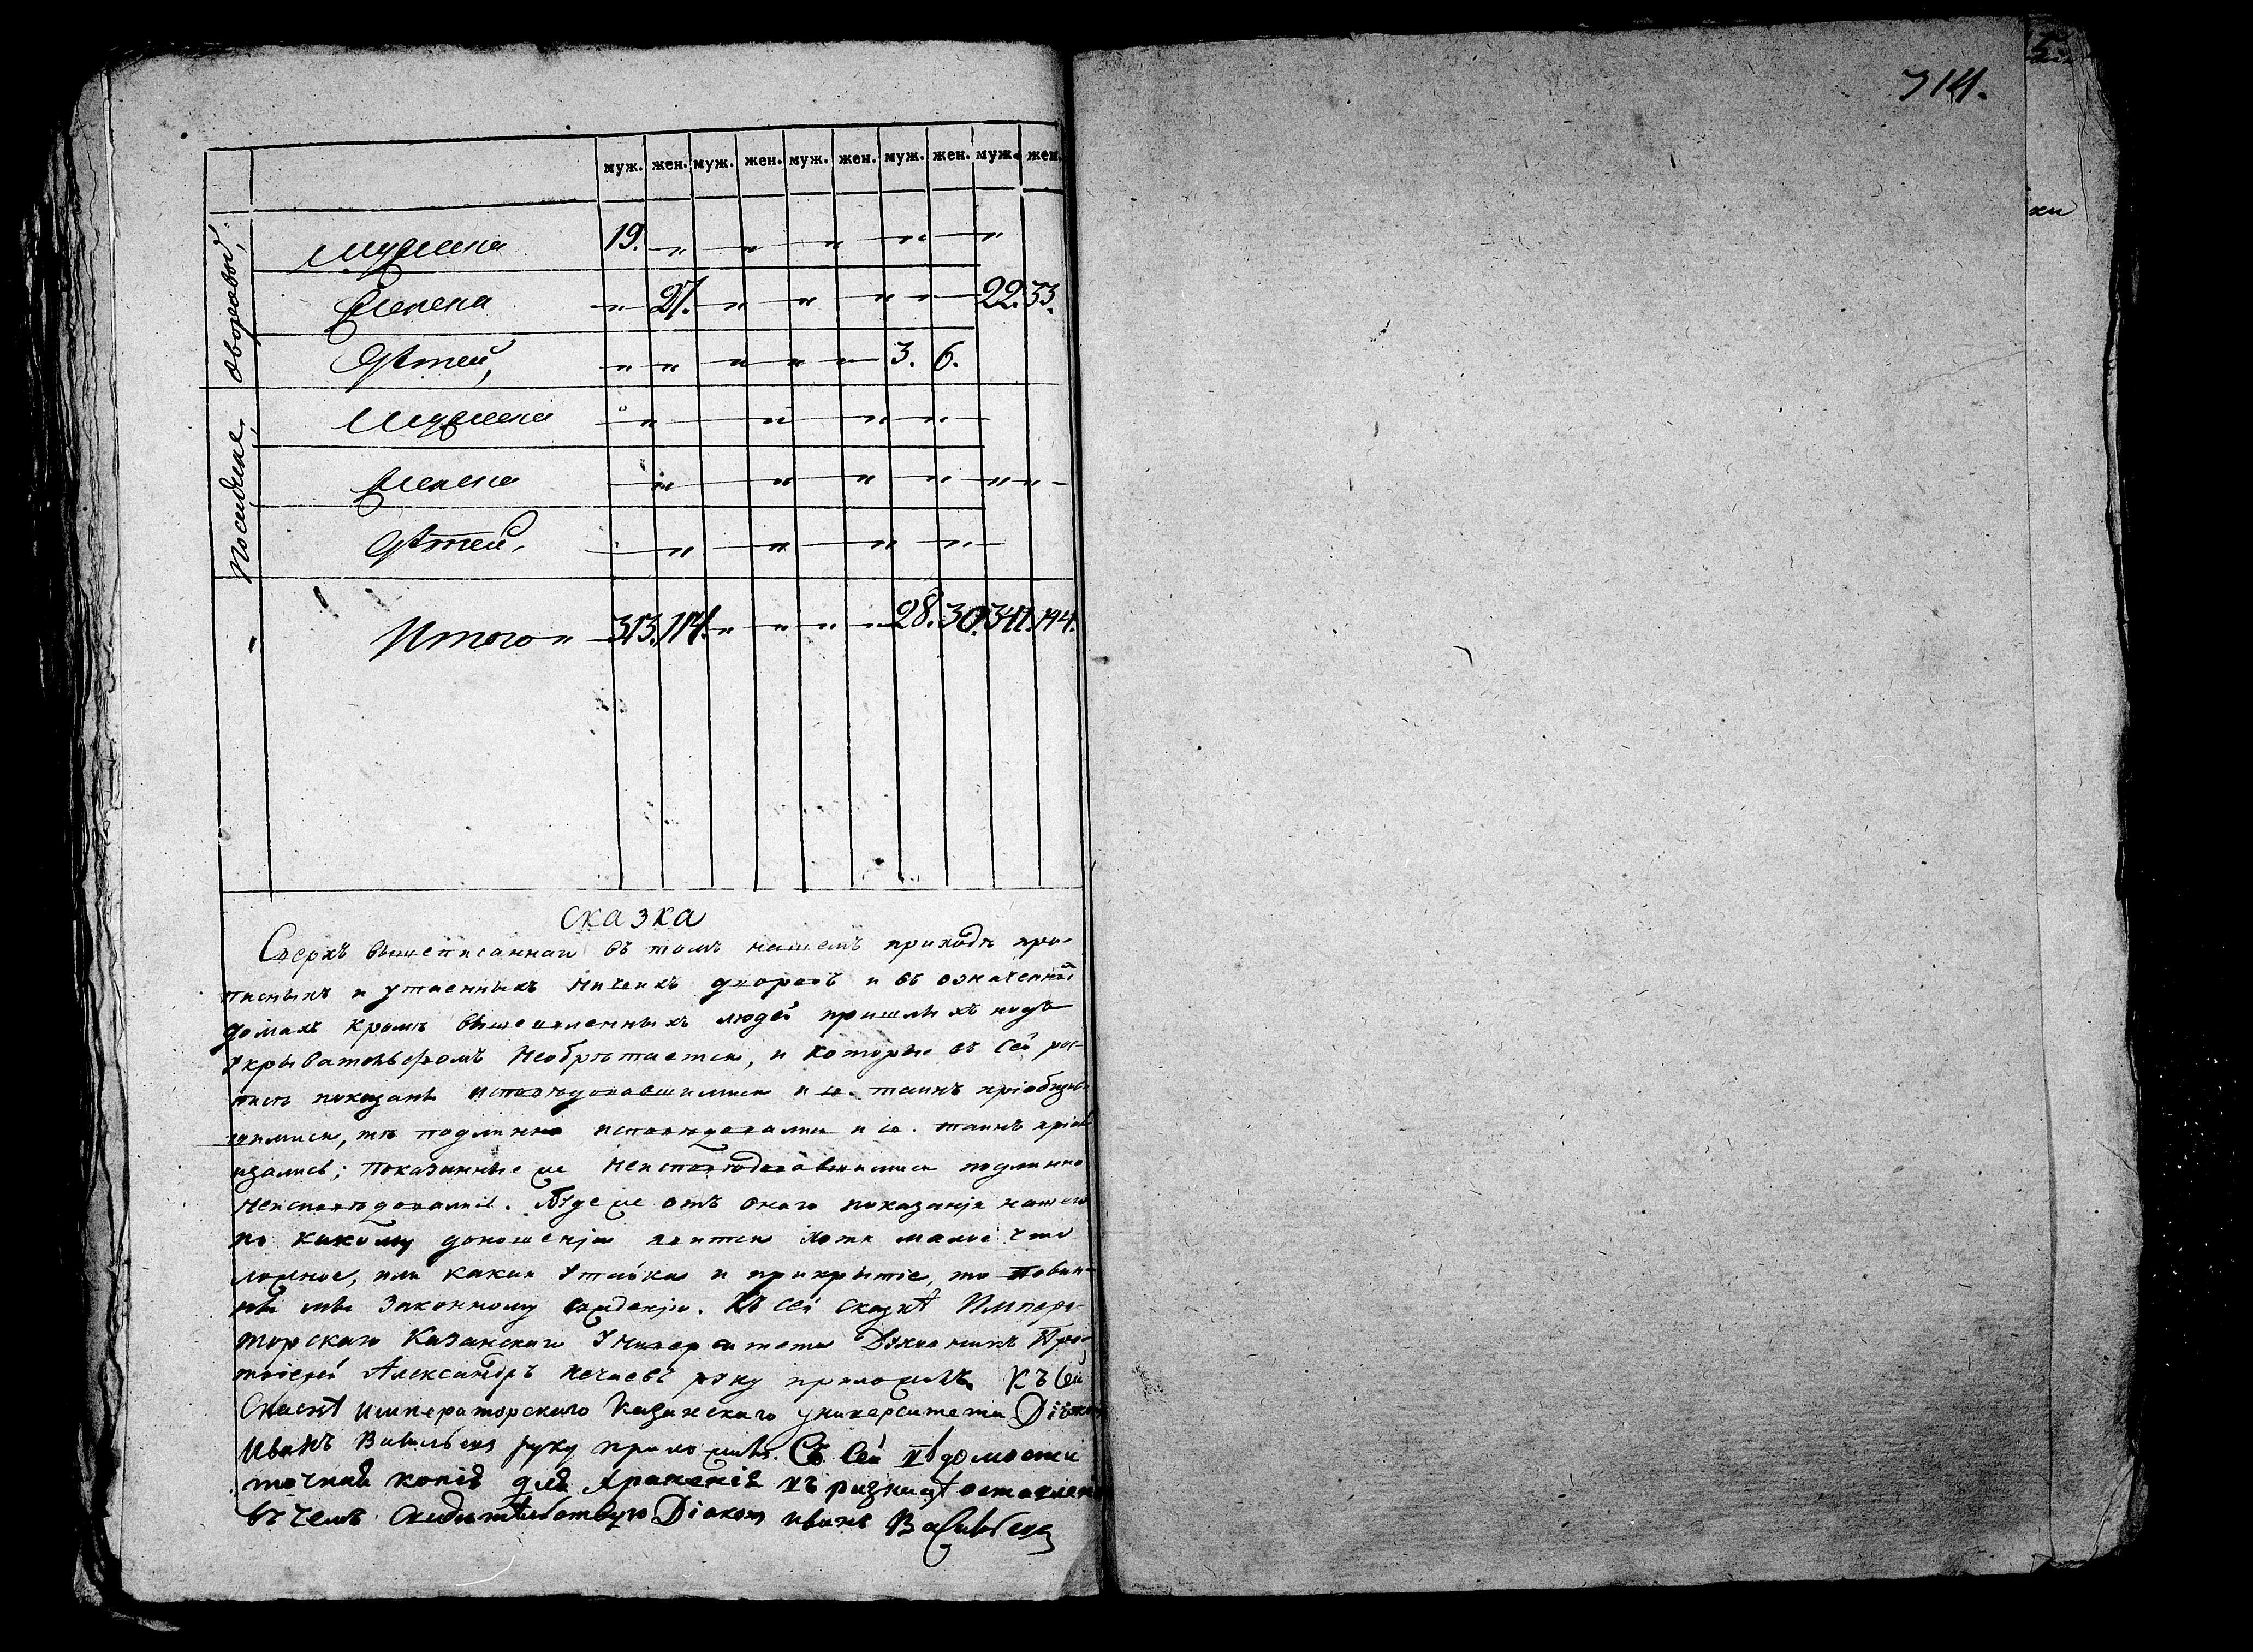 314.
муж. жен. муж. жен. муж. жен. муж. жен. муж. жен.
дворовые,
мужеска 19. „ „ „ „ „
женска „ 27. „ „ „ „ 22. 33.
дѣтей, „ „ „ „ „ 3. 6.
Посадские,
Мужеска „ „ „ „
женска „ „ „ „ „ „
дѣтей, „ „ „ „
Итого „ 313. 114. „ „ „ „ 28. 30. 341. 144.
Сказка
Сверхъ вышеписаннаго въ томъ нашемъ приходѣ про-
писныхъ и утаенныхъ ничьихъ дворовъ и въ означенныхъ
домахъ кромѣ вышеявленныхъ людей пришлыхъ подъ
укрывательствомъ необрѣтается, и которые въ сей рос-
писи показаны исповѣдовавшимися и св. таинъ пріобщив-
шимися, тѣ подлинно исповѣдовались и св. таинъ пріоб-
щались; показанные же неисповѣдовавшимися подлинно
неисповѣдовались. Буде же отъ онаго показанія нашего
по какому доношенію явится хотя малое что
ложное, или какая утайка и прикрытіе, то повин-
ны мы законному сужденію. Къ сей сказкѣ Импера-
торскаго Казанскаго Университета Духовникъ Про-
тоіерей Александръ Нечаевъ руку приложилъ. Къ сей
Сказкѣ императорскаго Казанскаго университета Діаконъ
Иванъ Васильевъ руку приложилъ. Съ сей вѣдомости
точная копія для храненія въ ризницѣ оставлена
въ чемъ свидѣтельствую Діаконъ иванъ Васильевъ